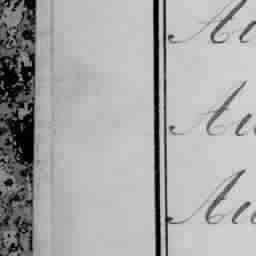 Au
Au
Au